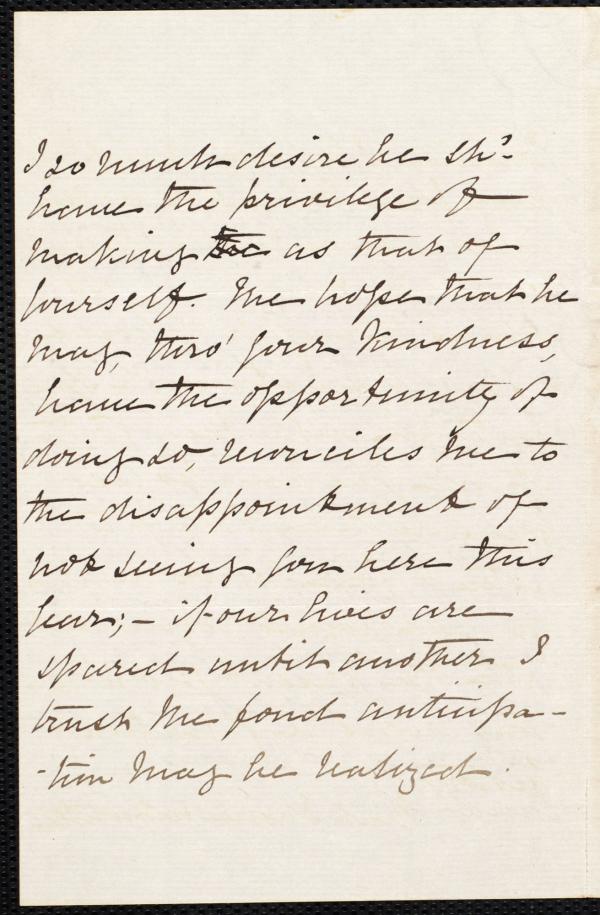 I so much desire he shd.
have the privilege of
making the as that of
yourself. The hope that he
may, thro' your kindness,
have the opportunity of
doing so, reconciles me to
the disappointment of
not seeing you here this
year; – if our lives are
spared until another I
trust the fond anticipa-
-tion may be realized.